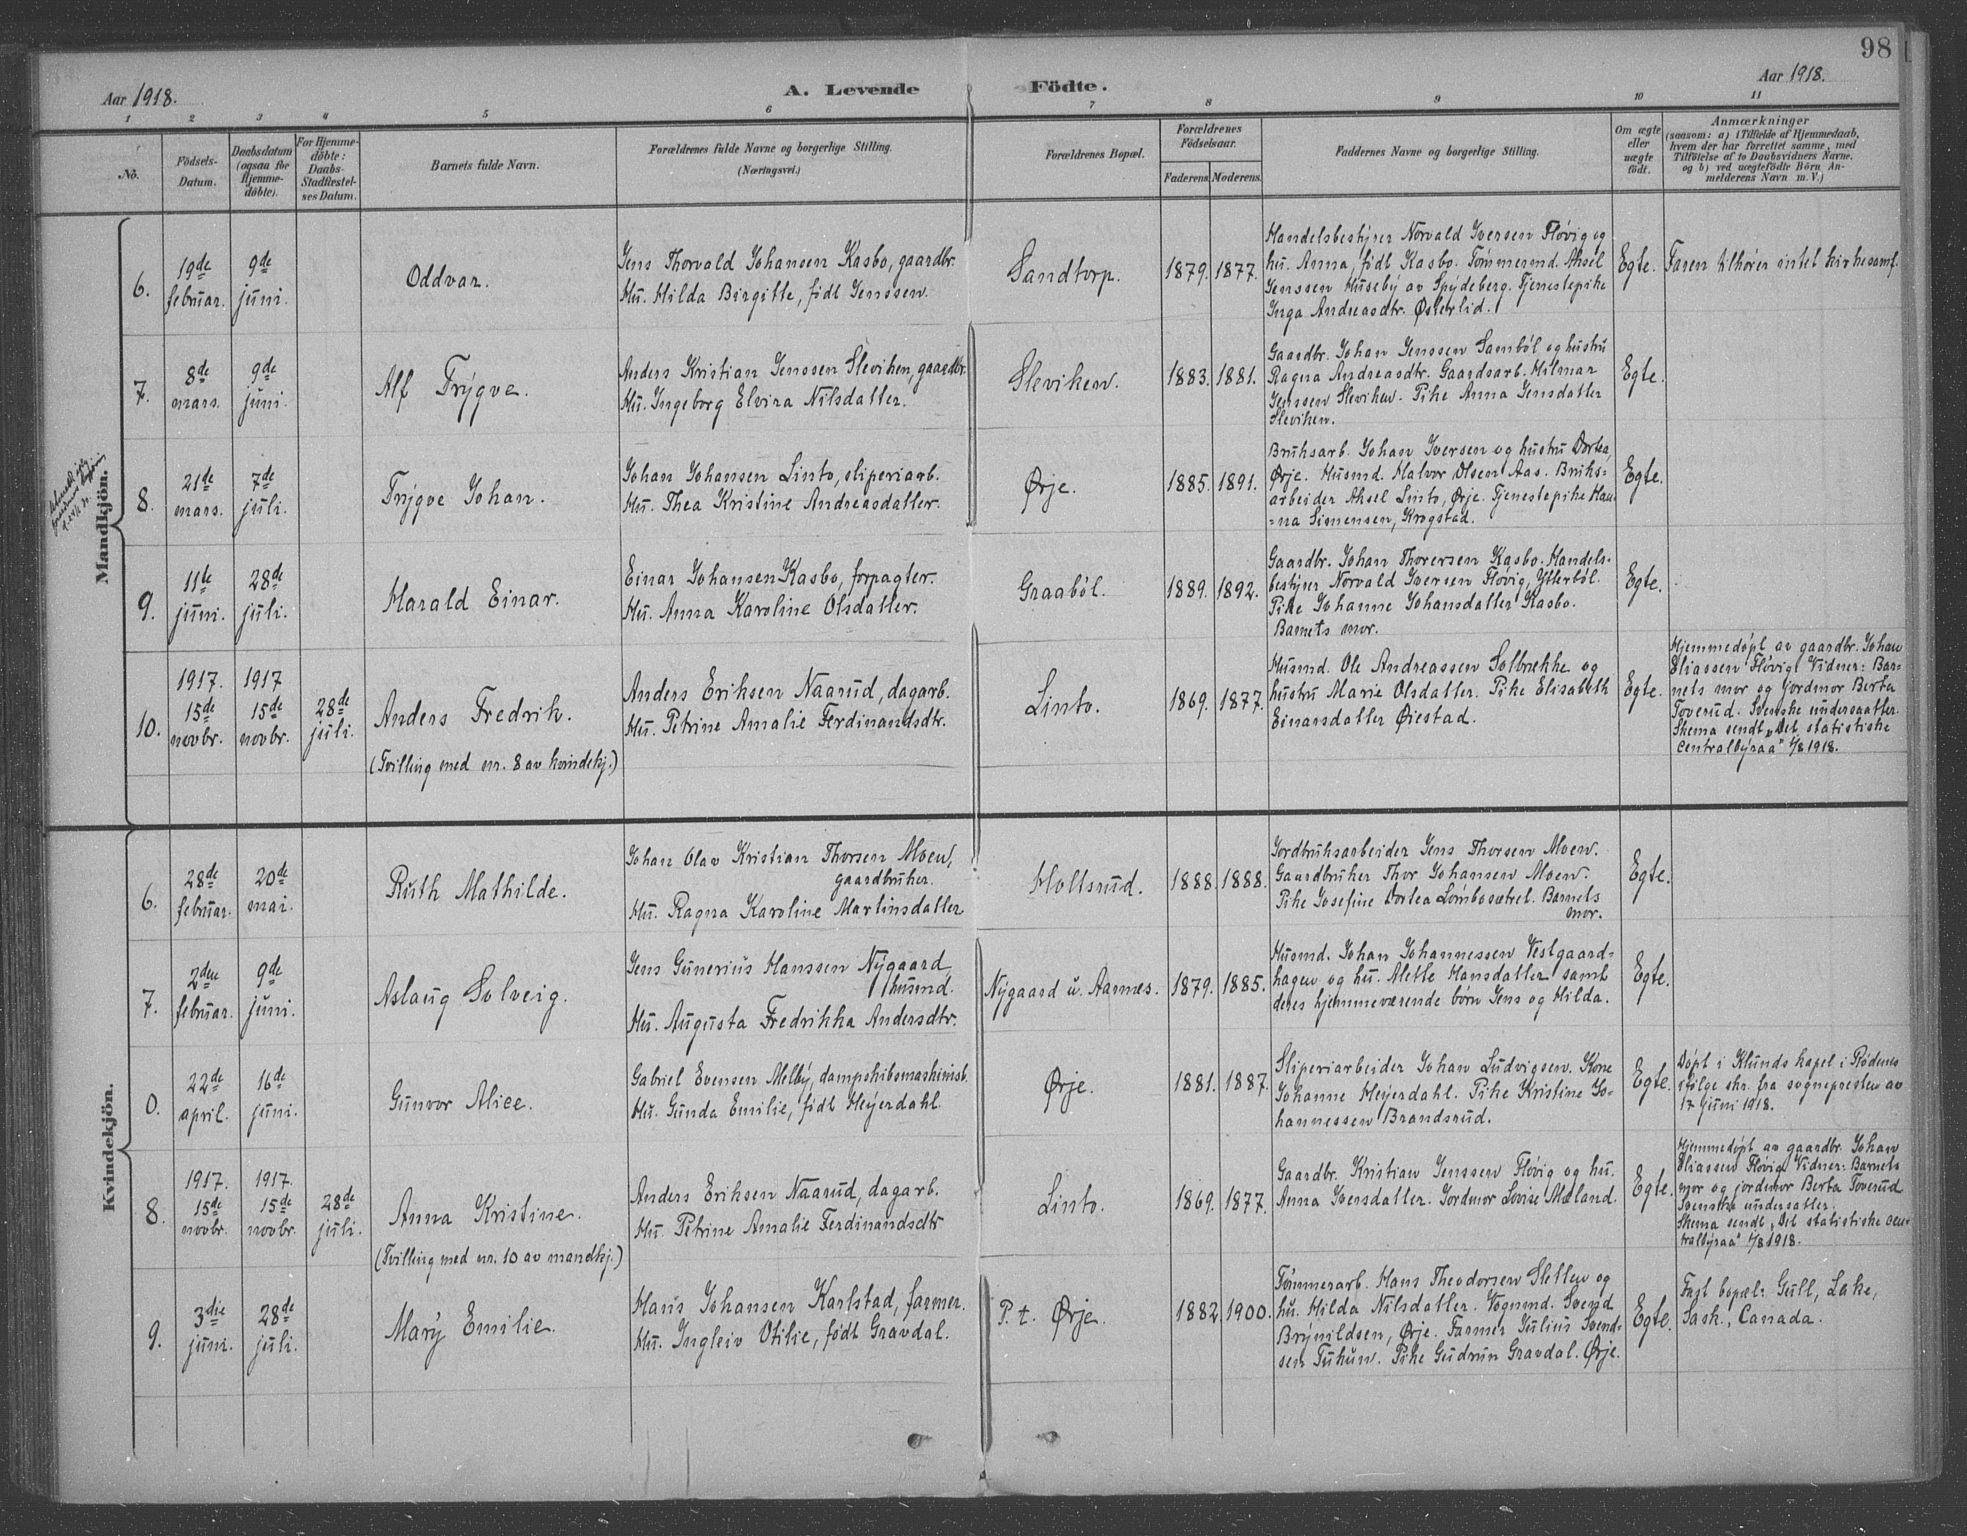 98
Aar 1918.
A. Levende
Födte.
Aar 1918.
1 2 3 4 5 6 7 8 9 10 11
No.
Födsels-
Datum.
Daabsdatum
(ogsaa for
Hjemme-
döbte).
For Hjemme-
döbte:
Daabs-
Stadfæstel-
ses Datum.
Barnets fulde Navn.
Forældrenes fulde Navne og borgerlige Stilling.
(Næringsvei.)
Forældrenes Bopæl.
Forældrenes
Födselsaar.
Faderens.
Moderens.
Faddernes Navne og borgerlige Stilling.
Om ægte
eller
uægte
födt.
Anmærkninger
(saasom: a) i Tilfælde af Hjemmedaab,
hvem der har forrettet samme, med
Tilföielse af to Daabsvidners Navne,
og b) ved uægtefödte Börn An-
melderens Navn m. V.)
Mandkjön.
6.
19de
februar.
9de
juni.
Oddvar.
Jens Thorvald Johansen Kasbo, gaardbr.
Hu. Hilda Birgitte, født Jenssen.
Sandtorp.
1879.
1877.
Handelsbestyrer Norvald Iversen Fløvig og
hu. Anna, født Kasbo. Tømmermd. Aksel
Jenssen Huseby av Spydeberg. Tjenestepike
Inga Andreasdtr. Østerlid.
Egte.
Faren tilhører intet kirkesamf.
7.
8de
mars.
9de
juni.
Alf Trygve.
Anders Kristian Jenssen Sleviken, gaardbr.
Hu. Ingeborg Elvira Nilsdatter.
Sleviken.
1883.
1881.
Gaardbr. Johan Jenssen Sambøl og hustru
Ragna Andreasdtr. Gaardsarb. Hilmar
Jenssen Sleviken. Pike Anna Jensdatter
Sleviken.
Egte.
8.
21de
mars.
7de
juli.
Trygve Johan.
Johan Johansen Linto, sliperiarb.
Hu. Thea Kristine Andreasdatter.
Ørje.
1885.
1891.
Bruksarb. Johan Iversen og hustru Dortea,
Ørje. Husmd. Halvor Olsen Aas. Bruks-
arbeider Aksel Linto, Ørje. Tjenestepike Han-
=na Simensen, Krogstad.
Egte.
9.
11te
juni.
28de
juli.
Harald Einar.
Einar Johansen Kasbo, forpagter.
Hu. Anna Karoline Olsdatter.
Graabøl.
1889.
1892.
Gaardbr. Johan Thorersen Kasbo. Handels-
bestyrer Norvald Iversen Fløvig, Ytterbøl.
Pike Johanne Johansdatter Kasbo.
Barnets mor.
Egte.
10.
1917.
15de
novbr.
1917
15de
novbr.
28de
juli.
Anders Fredrik.
(Tvilling med nr. 8 av kvindekj.)
Anders Eriksen Naarud, dagarb.
Hu. Petrine Amalie Ferdinandsdtr.
Linto.
1869.
1877.
Husmd. Ole Andreassen Solbrække og
hustru Marie Olsdatter. Pike Elisabeth
Einarsdatter Øiestad.
Egte.
Hjemmedøpt av gaardbr. Johan
Eliassen Fløvig. Vidner: Bar-
nets mor og jordmor Berta
Toverud. Svenske undersaatter.
Skema sendt „Det statistiske
centralbyraa" 1/8 1918.
Kvindekjön.
6.
28de
februar.
20de
mai.
Ruth Mathilde.
Johan Olav Kristian Thorsen Moen,
gaardbruker.
Hu. Ragna Karoline Martinsdatter
Holtsrud.
1888.
1888.
Jordbruksarbeider Jens Thorsen Moen.
Gaardbruker Thor Johansen Moen.
Pike Josefine Dortea Lømbosætret. Barnets
mor.
Egte.
7.
2den
februar.
9de
juni.
Aslaug Solveig.
Jens Gunerius Hanssen Nygaard,
husmd.
Hu. Augusta Fredrikka Andersdtr.
Nygaard u. Aarnæs.
1879.
1885.
Husmd. Johan Johannessen Vestgaard-
hagen og hu. Mette Hansdatter samt
deres hjemmeværende børn Jens og Hilda.
Egte.
0.
22de
april.
16de
juni.
Gunvor Alice.
Gabriel Evensen Melby, dampskibsmaskinistb.
Hu. Gunda Emilie, født Heyerdahl.
Ørje.
1881.
1887.
Sliperiarbeider Johan Ludvigsen. Kone
Johanne Heyerdahl. Pike Kristine Jo-
hannessen Brandsrud.
Egte.
Døpt i Klunds kapel i Rødenes
ifølge skr. fra sognepresten av
17 juni 1918.
8.
1917.
15de
novbr.
1917.
15de
novbr.
28de
juli.
Anna Kristine.
(Tvilling med nr. 10 av mandkj.)
Anders Eriksen Naarud, dagarb.
Hu. Petrine Amalie Ferdinandsdtr
Linto.
1869.
1877.
Gaardbr. Kristian Jenssen Fløvig og hu.
Anna Iversdatter. Jordmor Lovise Mæland.
Egte.
Hjemmedøpt av gaardbr. Johan
Eliassen Fløvig. Vidner: Barnets
mor og jordmor Berta Toverud
Svenske undersatter.
Skema sendt „Det statistiske cen-
tralbyraa" 1/8 1918.
9.
3die
juni.
28de
juli.
Mary Emilie.
Hans Johansen Karlstad, farmer.
Hu. Ingleiv Otilie, født Gravdal.
P. t. Ørje.
1882.
1900.
Tømmerarb. Hans Theodorsen Sletten og
hu. Hilda Nilsdatter. Vognmd. Svend
Brynildsen, Ørje. Farmer Julius Svend-
sen Tukun. Pike Gudrun Gravdal. Ørje.
Egte.
Fast bopæl: Gull, Lake,
Sask., Canada.